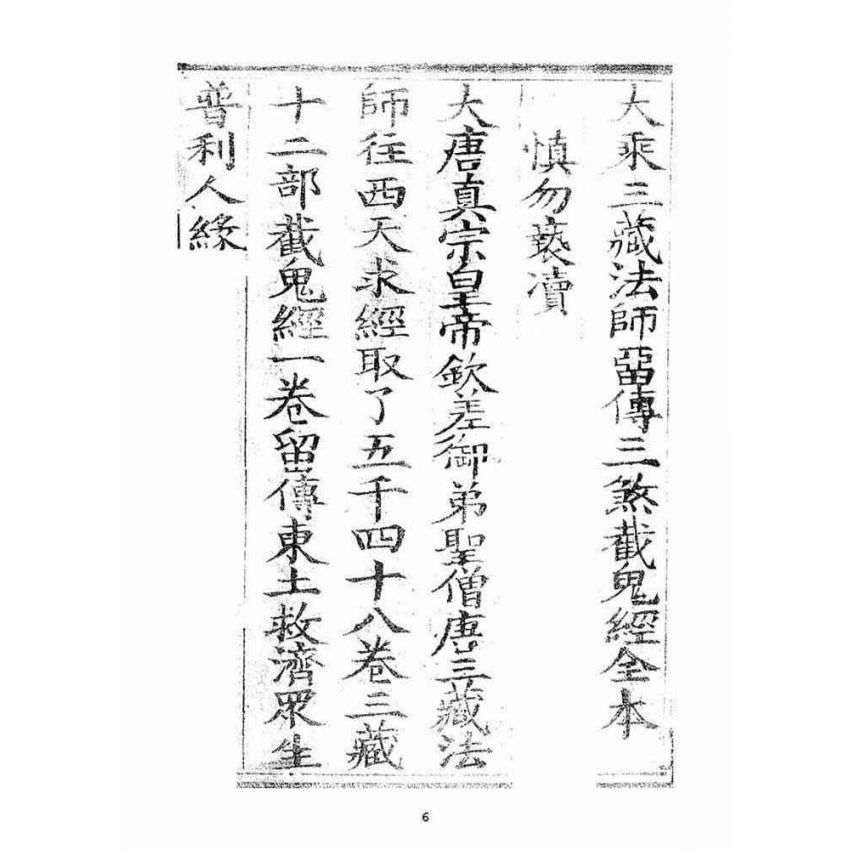 大乘三藏法師畱傳三煞截鬼經全本
慎勿褻瀆
大唐真宗皇帝欽差御弟聖僧唐三藏法
師往西天求經取了五千四十八卷三藏
十二部截鬼經一卷留傳東土救濟眾生
普利人緣
6